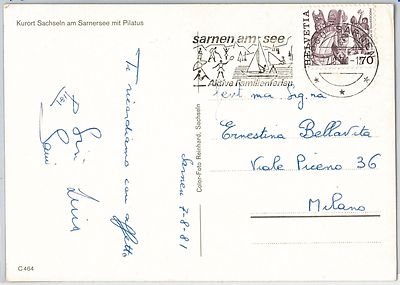 Kurort Sachseln am Sarnersee mit Pilatus
Ti ricordiamo con affetto
Luisa
Sarnen 7-8-81
C 464
Color-Foto Reinhard, Sachseln
sarnen am see
Aktive Familienferien
HELVETIA
70
Gent.ma Sig.na
Ernestina Bellavita
Viale Piceno 36
Milano